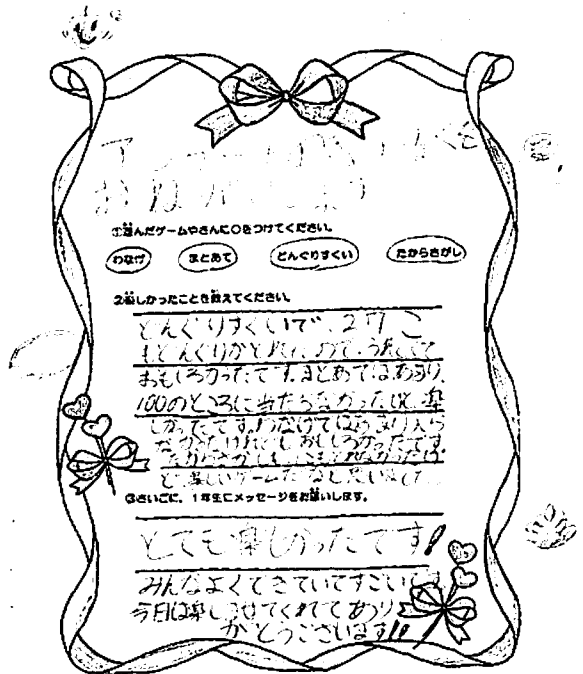 アンケートのごきょうりょく
おねがいします
①遊んだゲームやさんに○をつけてください。
わなげ まとあて どんぐりすくい たからさがし
2楽しかったことを教えてください。
どんぐりすくいで、27こ
もどんぐりがとれたので、うれしくて
おもしろかったです。まとあてはあまり、
100のところに当たらなかったけど、楽
しかったです。わなげではあまり入ら
なかったけれど、おもしろかったです
たからさがしは
ど、楽しいゲームだなと思いました。
③さいごに、1年生にメッセージをお願いします。
とても楽しかったです!
みんなよくできていてすごいです
今日は楽しませてくれてあり
がとうございます!!